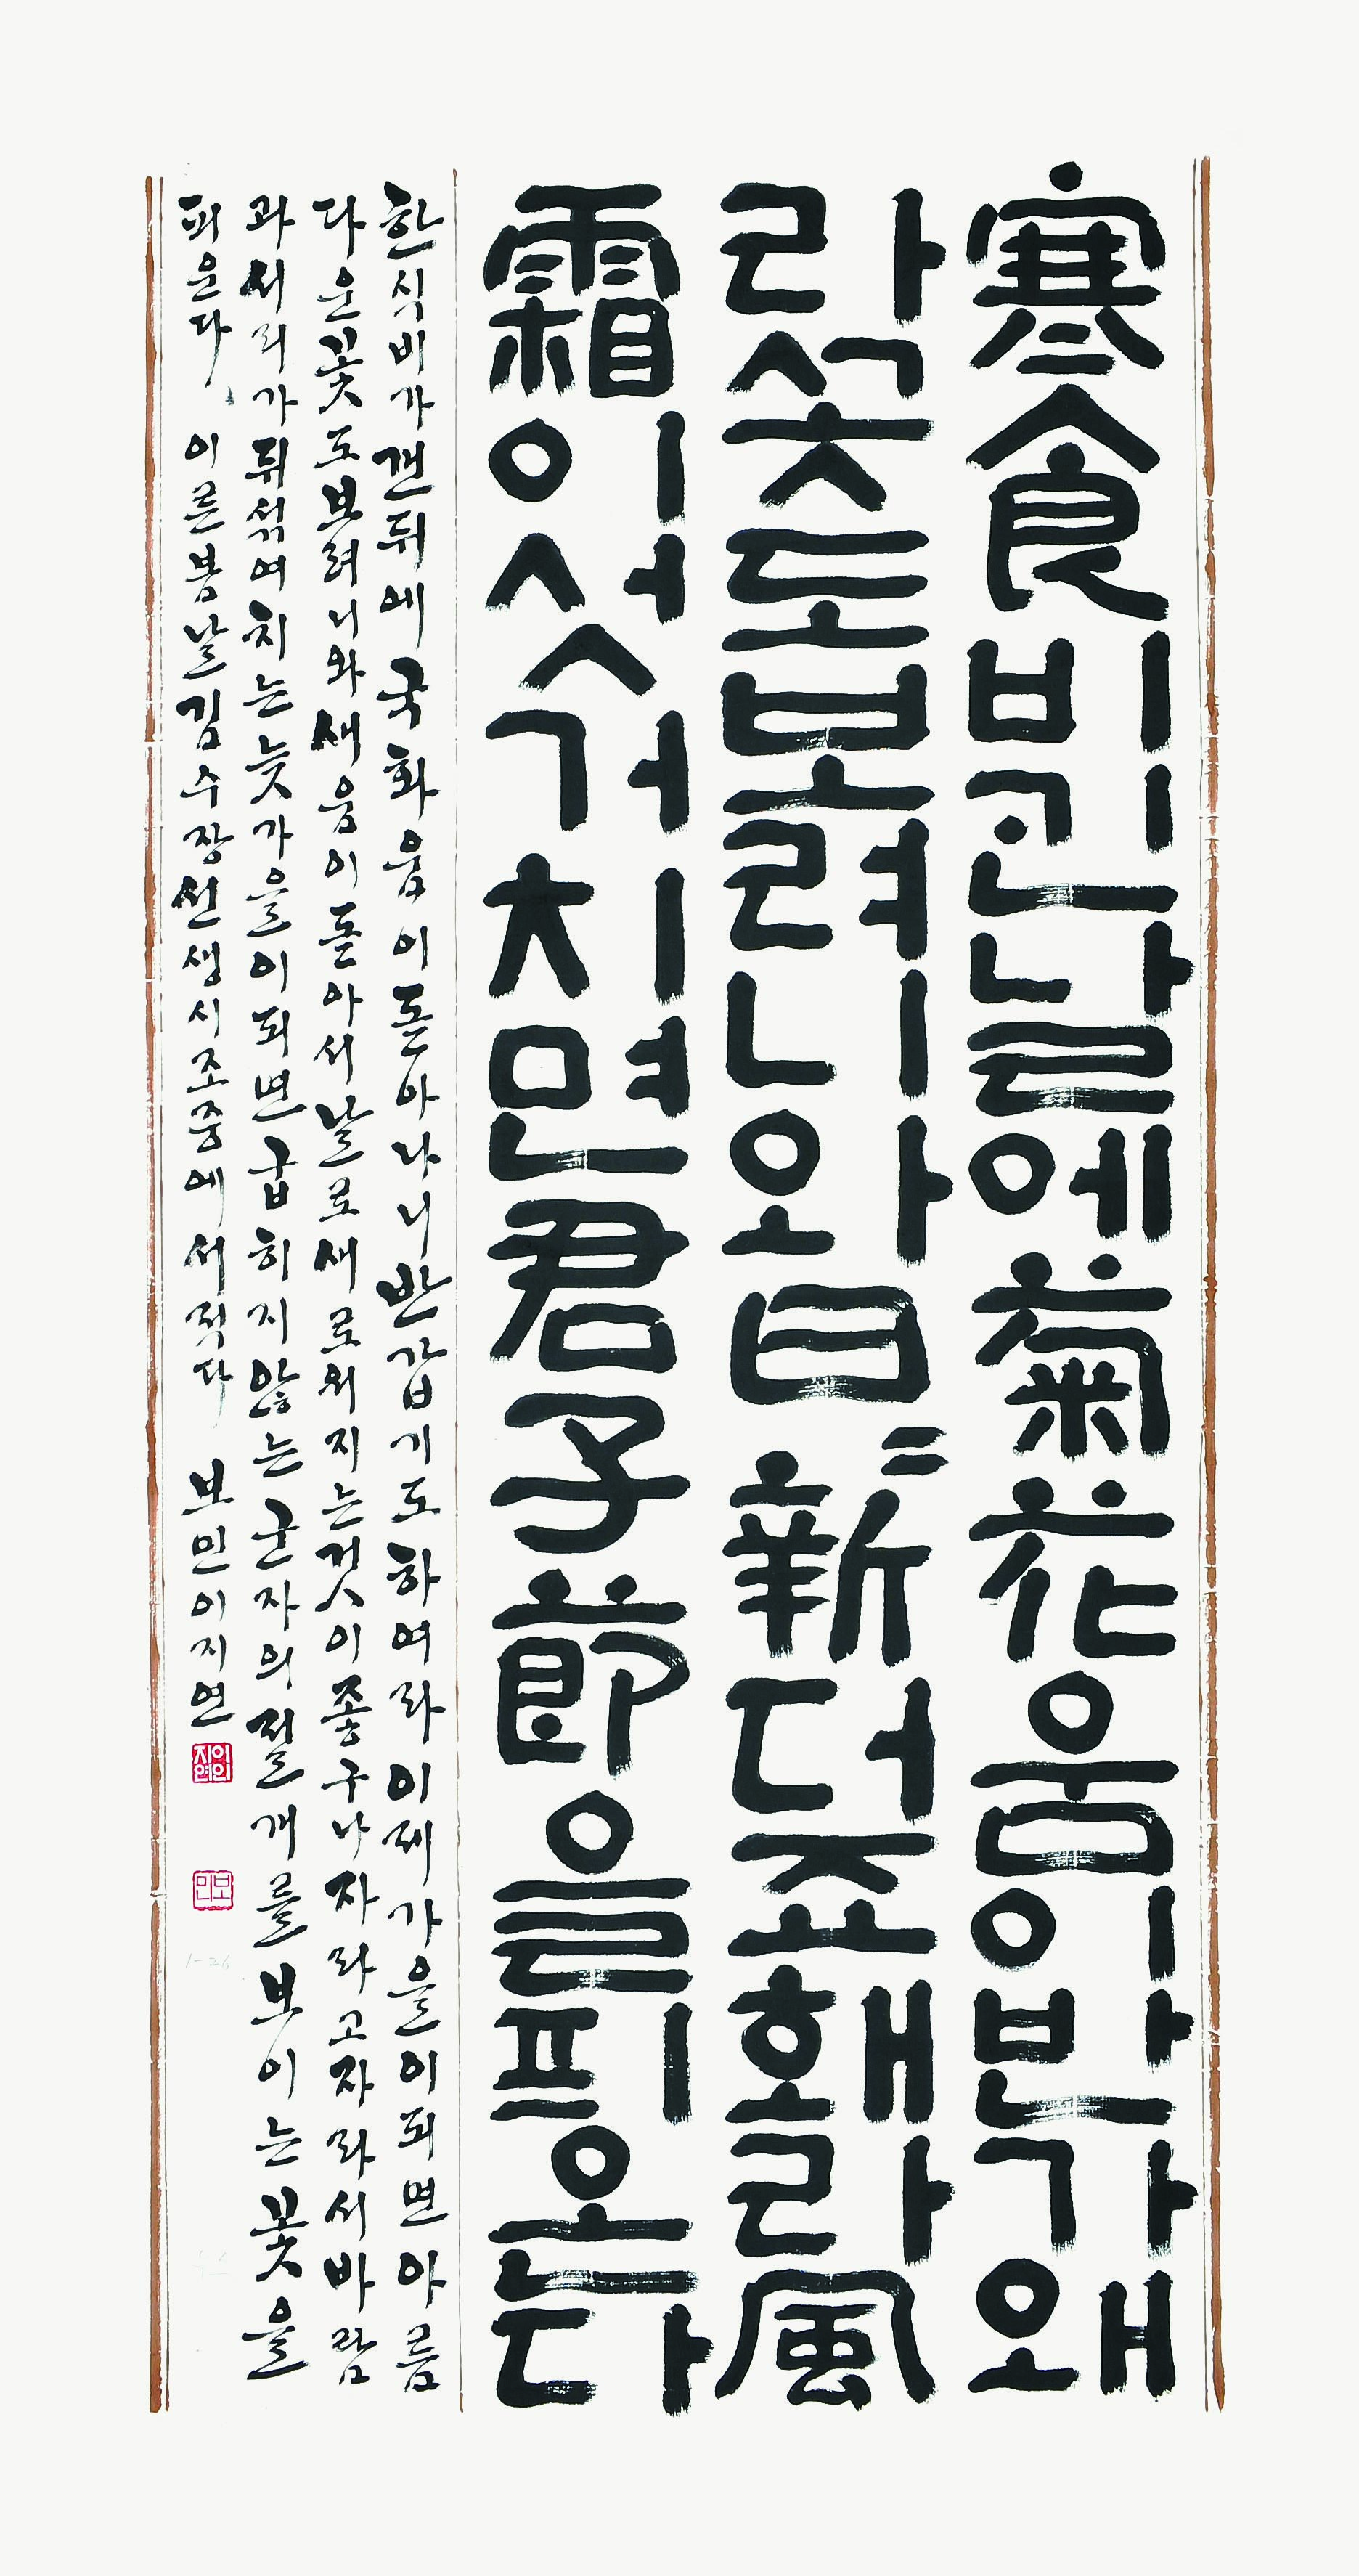 寒食비ᄀᆡᆫ날에菊花움이반가왜
라ᄭᅩᆺ도보려니와日〻新더죠홰라風
霜이섯거치면君子節을픠온다
한식비가갠뒤에국화움이돋아나니반갑기도하여라이제가을이되면아름
다운꽃도보려니와새움이돋아서날로새로워지는것이좋구나자라고자라서바람
과서리가뒤섞여치는늦가을이되면굽히지않는군자의절개를보이는꽃을
피운다 이른봄날김수장선생시조중에서적다 보민이지연
이지연인
보민
1-26